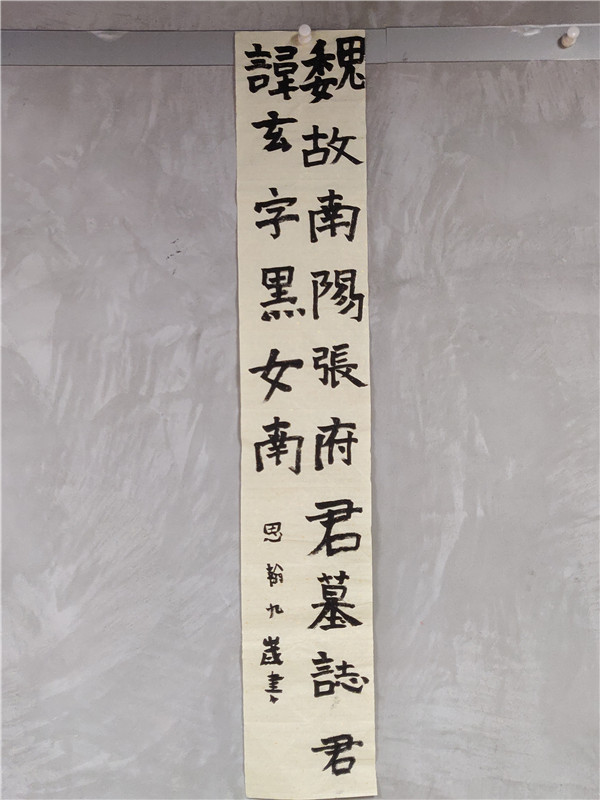 魏故南陽張府君墓誌君
諱玄字黑女南
思翰九歲書